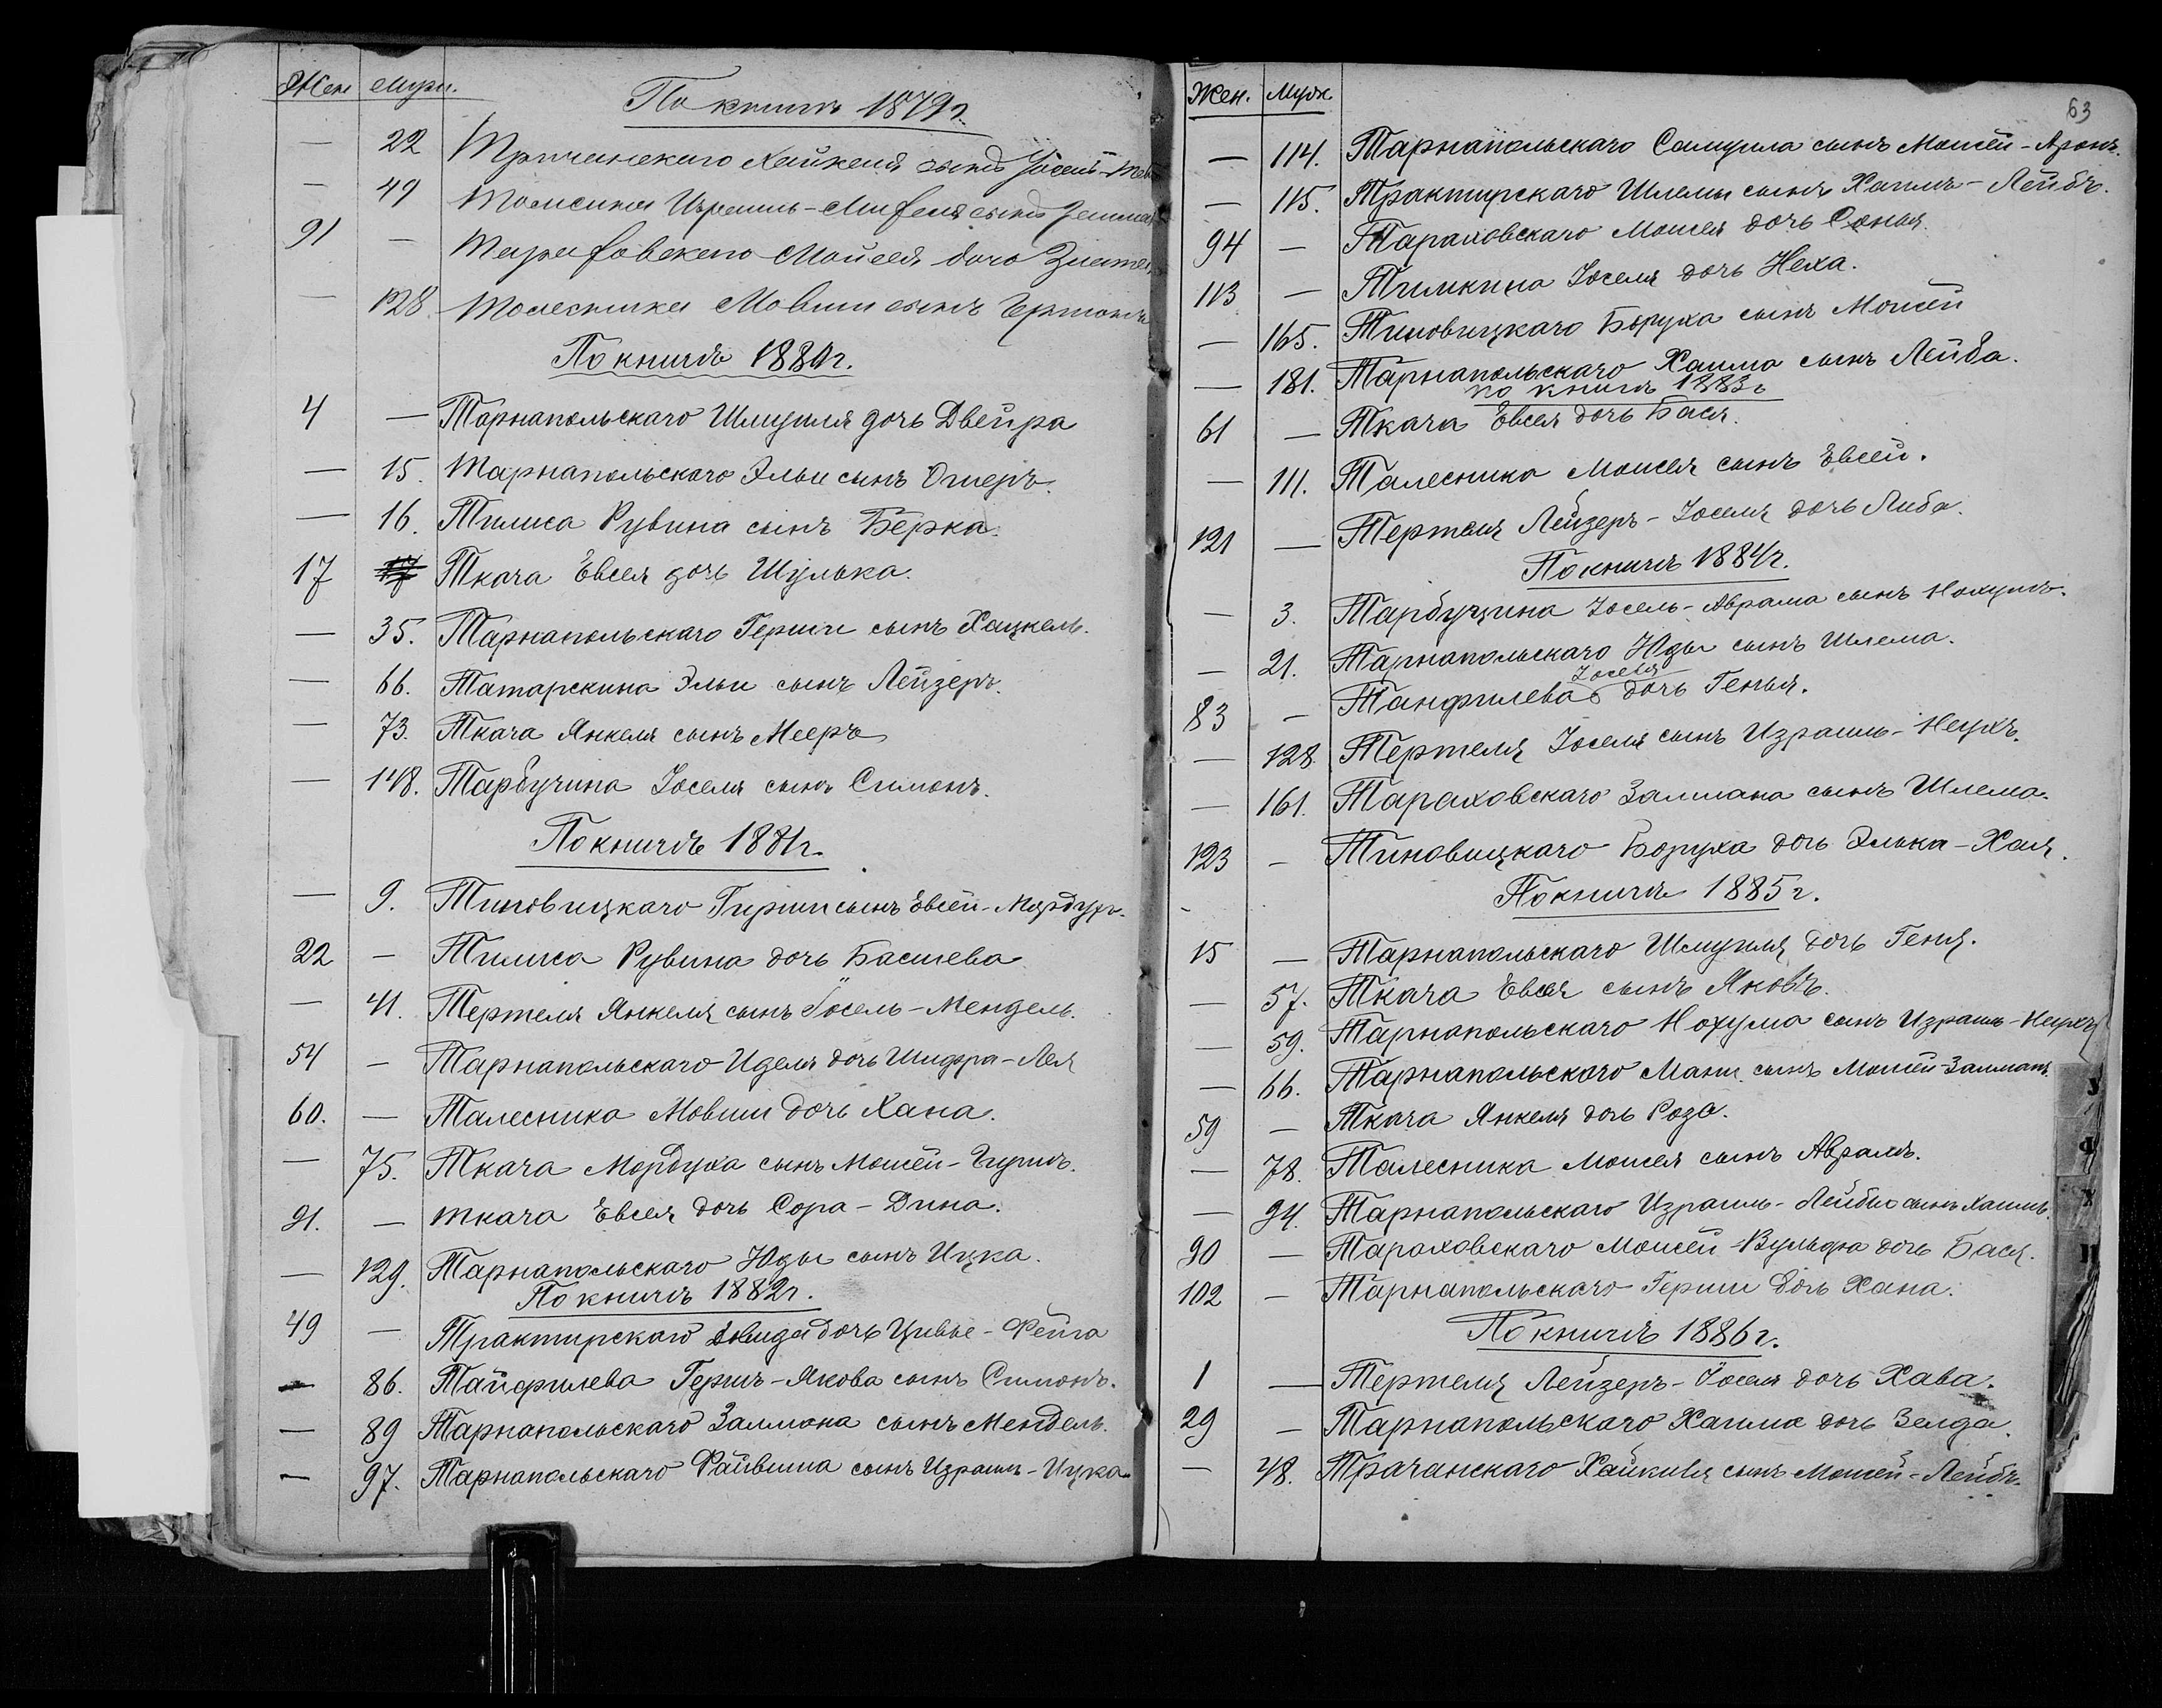 Жен Муж.
По книгѣ 1879г
— 22 Трачанскаго Хайкеля сынъ Іосей-
— 49 Израиль- сынъ
91 — Мойсея дочь Злата
— 128. Талесника Мовши сынъ
По книгѣ 1880г.
4 — Тарнапольскаго Шмуиля дочь Двейра
— 15. Тарнапольскаго Эльи сынъ Ошеръ.
— 16. Тилиса Рувина сынъ Берка.
17 17 Ткача Евсея дочь Шулька.
— 35. Тарнапольскаго Герши сынъ Хацкель.
— 66. Татарскина Эльи сынъ Лейзеръ.
— 73. Ткача Янкеля сынъ Мееръ
— 148. Тарбучина Іоселя сынъ Симонъ.
По книгѣ 1881г.
— 9. Тиновицкаго Гирши сынъ Евсей-Мордухъ.
22 — Тилиса Рувина дочь Басшева
— 41. Тертеля Янкеля сынъ Іосель-Мендель.
54 — Тарнапольскаго Иделя дочь Шифра-Лея
60. — Талесника Мовши дочь Хана.
— 75. Ткача Мордуха сынъ Моисей-Гиршъ.
91. — Ткача Евсея дочь Сора-Дина.
— 129. Тарнапольскаго Юды сынъ Ицка.
По книгѣ 1882г.
49 — Трактирскаго Давида дочь Цивье-Фейга
— 86. Танфилева Гершъ-Якова сынъ Симонъ.
— 89 Тарнапольскаго Залмона сынъ Мендель.
— 97. Тарнапольскаго Файвиша сынъ Израиль-Ицка
Жен. Муж
63
— 114. Тарнапольскаго Самуила сынъ Моисей-Аронъ.
— 115. Трактирскаго Шлемы сынъ Хаимъ-Лейбъ.
94 — Тараховскаго Моисея дочь Сонья.
113 — Тимкина Іоселя дочь Неха.
— 165. Тиновицкаго Боруха сынъ Моисей
— 181. Тарнапольскаго Хаима сынъ Лейба.
по книгѣ 1883г
61 — Ткача Евсея дочь Бася.
— 111. Талесника Моисея сынъ Евсей.
121 — Тертеля Лейзеръ-Іоселя дочь Либа.
По книгѣ 1884г.
— 3. Тарбучина Іосель-Аврама сынъ Нохумъ.
— 21. Тарнапольскаго Юды сынъ Шлема.
Іоселя
83 — Танфилева дочь Генья.
— 128. Тертеля Іоселя сынъ Израиль-Неухъ.
— 161. Тараховскаго Залмана сынъ Шлема.
123 — Тиновицкаго Боруха дочь Элька-Хая.
По книгѣ 1885г.
15 — Тарнапольскаго Шмуиля дочь Геня.
— 57. Ткача Евсея сынъ Яковъ.
— 59. Тарнапольскаго Нохума сынъ Израиль-Неухъ
— 66. Тарнапольскаго Мани сынъ Моисей-Залманъ.
59 — Ткача Янкеля дочь Роза.
— 78. Талесника Моисея сынъ Аврамъ.
— 94. Тарнапольскаго Израиль-Лейбы сынъ Хаимъ.
90 — Тараховскаго Моисей-Вульфа дочь Бася.
102 — Тарнапольскаго Герши дочь Хана.
По книгѣ 1886г.
1 — Тертеля Лейзеръ-Іоселя дочь Хава.
29 — Тарнапольскаго Хаима дочь Зелда.
— 48. Трачанскаго Хайкиля сынъ Моисей-Лейбъ.
У
Ф
Х
Ц